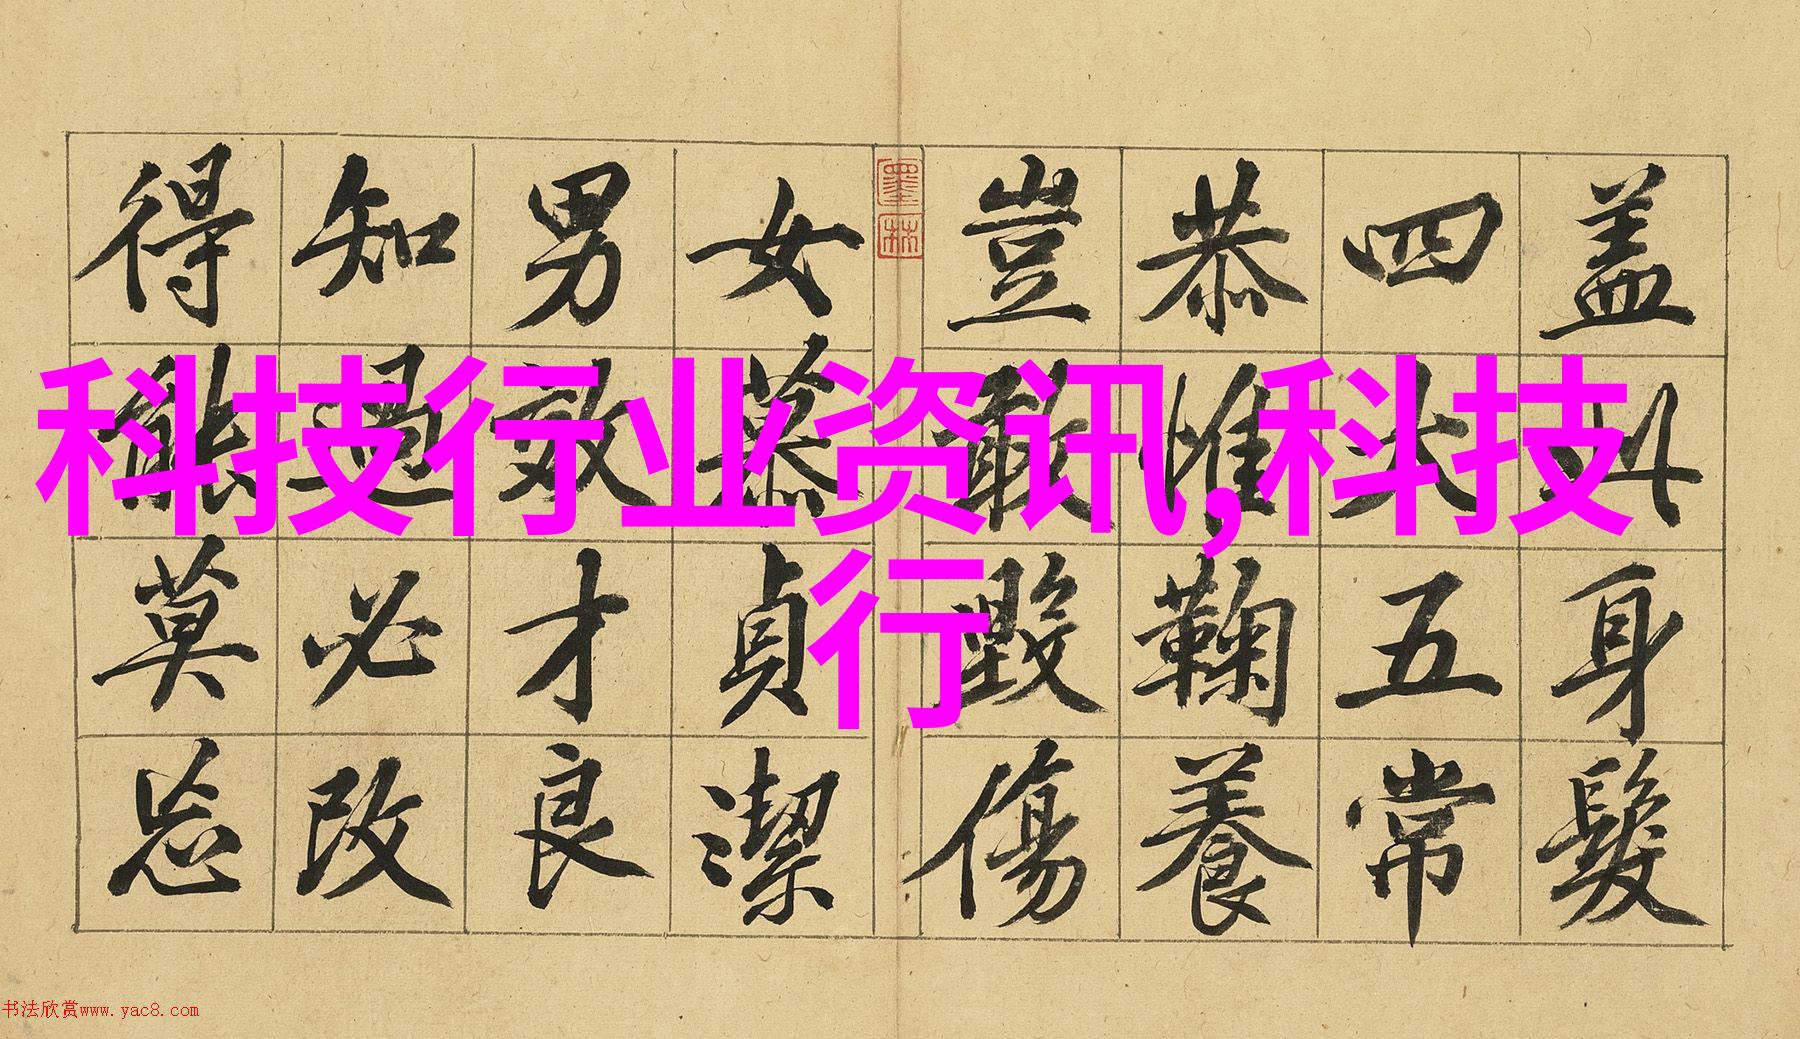 盖此身髮
四大五常
恭惟鞠養
豈敢毀傷
墨林
女慕貞潔
男效才良
知過必改
得能莫忘
科技行业资讯,科技
行
书法欣赏www.yac8.com